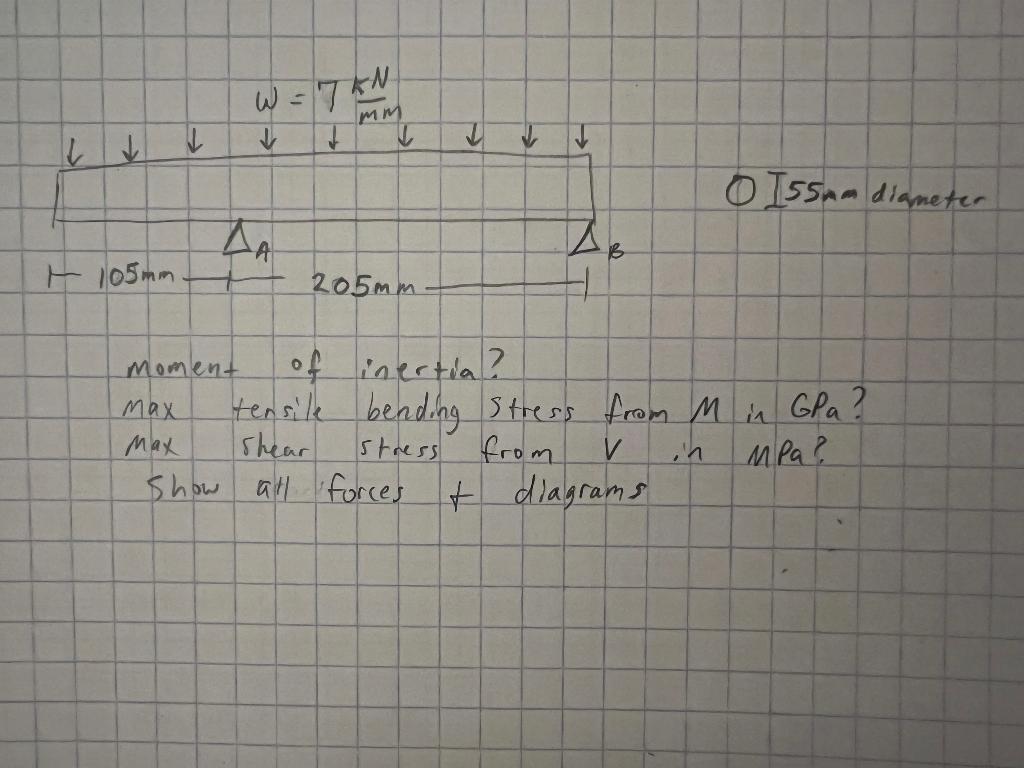 w = 7 kN/mm
55mm diameter
A
B
105mm
205mm
moment of inertia?
Max tensile bending stress from M in GPa?
Max shear stress from V in MPa?
Show all forces + diagrams